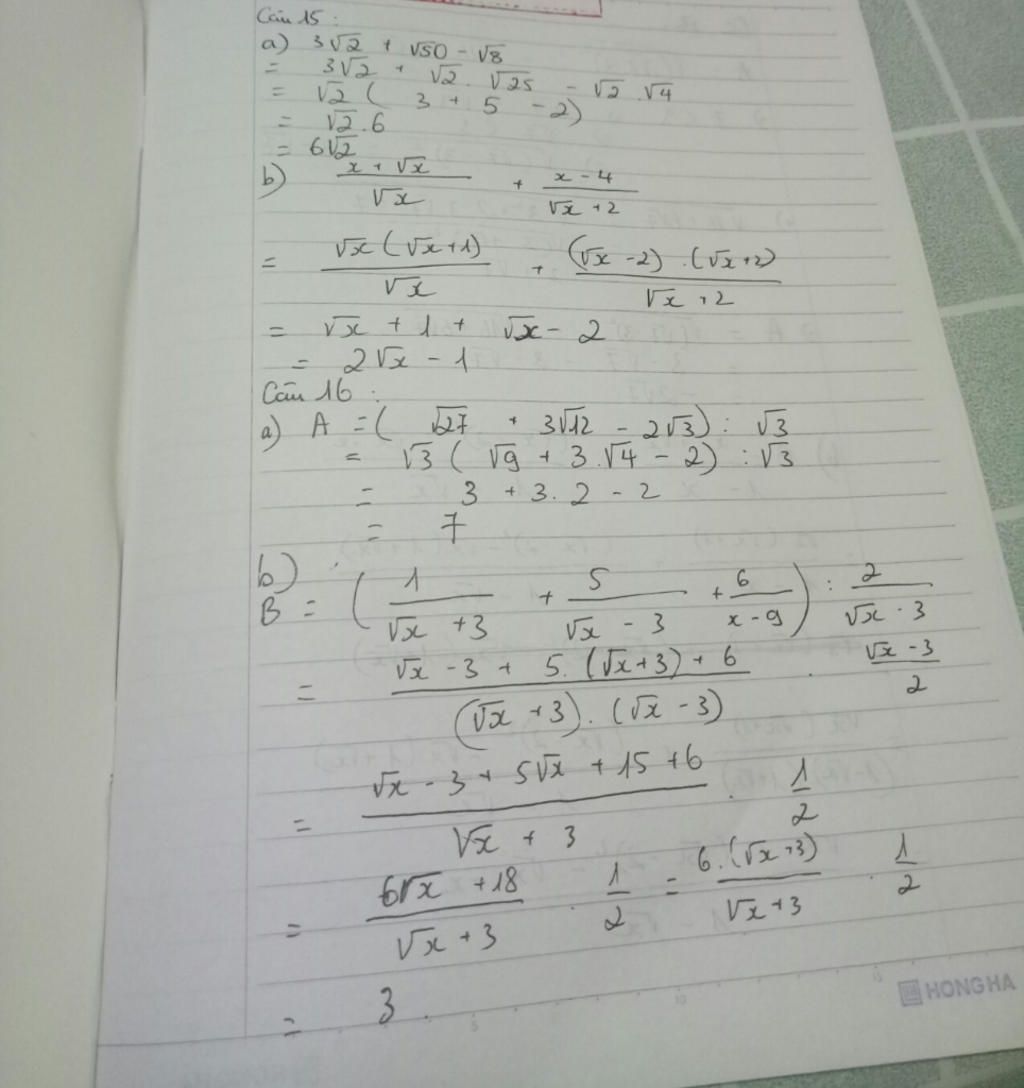 Câu 15 :
a) 3√2 + √50 - √8
= 3√2 + √2 . √25 - √2 . √4
= √2 ( 3 + 5 - 2)
= √2 . 6
= 6√2
b) (x + √x)/(√x) + (x - 4)/(√x + 2)
= (√x (√x + 1))/(√x) + ((√x - 2) . (√x + 2))/(√x + 2)
= √x + 1 + √x - 2
= 2√x - 1
Câu 16 :
a) A = ( √27 + 3√12 - 2√3 ) : √3
= √3 ( √9 + 3 . √4 - 2) : √3
= 3 + 3 . 2 - 2
= 7
b)
B = ( 1/(√x + 3) + 5/(√x - 3) + 6/(x - 9) ) : 2/(√x - 3)
= (√x - 3 + 5 . (√x + 3) + 6)/((√x + 3) . (√x - 3)) . (√x - 3)/2
= (√x - 3 + 5√x + 15 + 6)/(√x + 3) . 1/2
= (6√x + 18)/(√x + 3) . 1/2 = (6 . (√x + 3))/(√x + 3) . 1/2
= 3 .
HONG HA